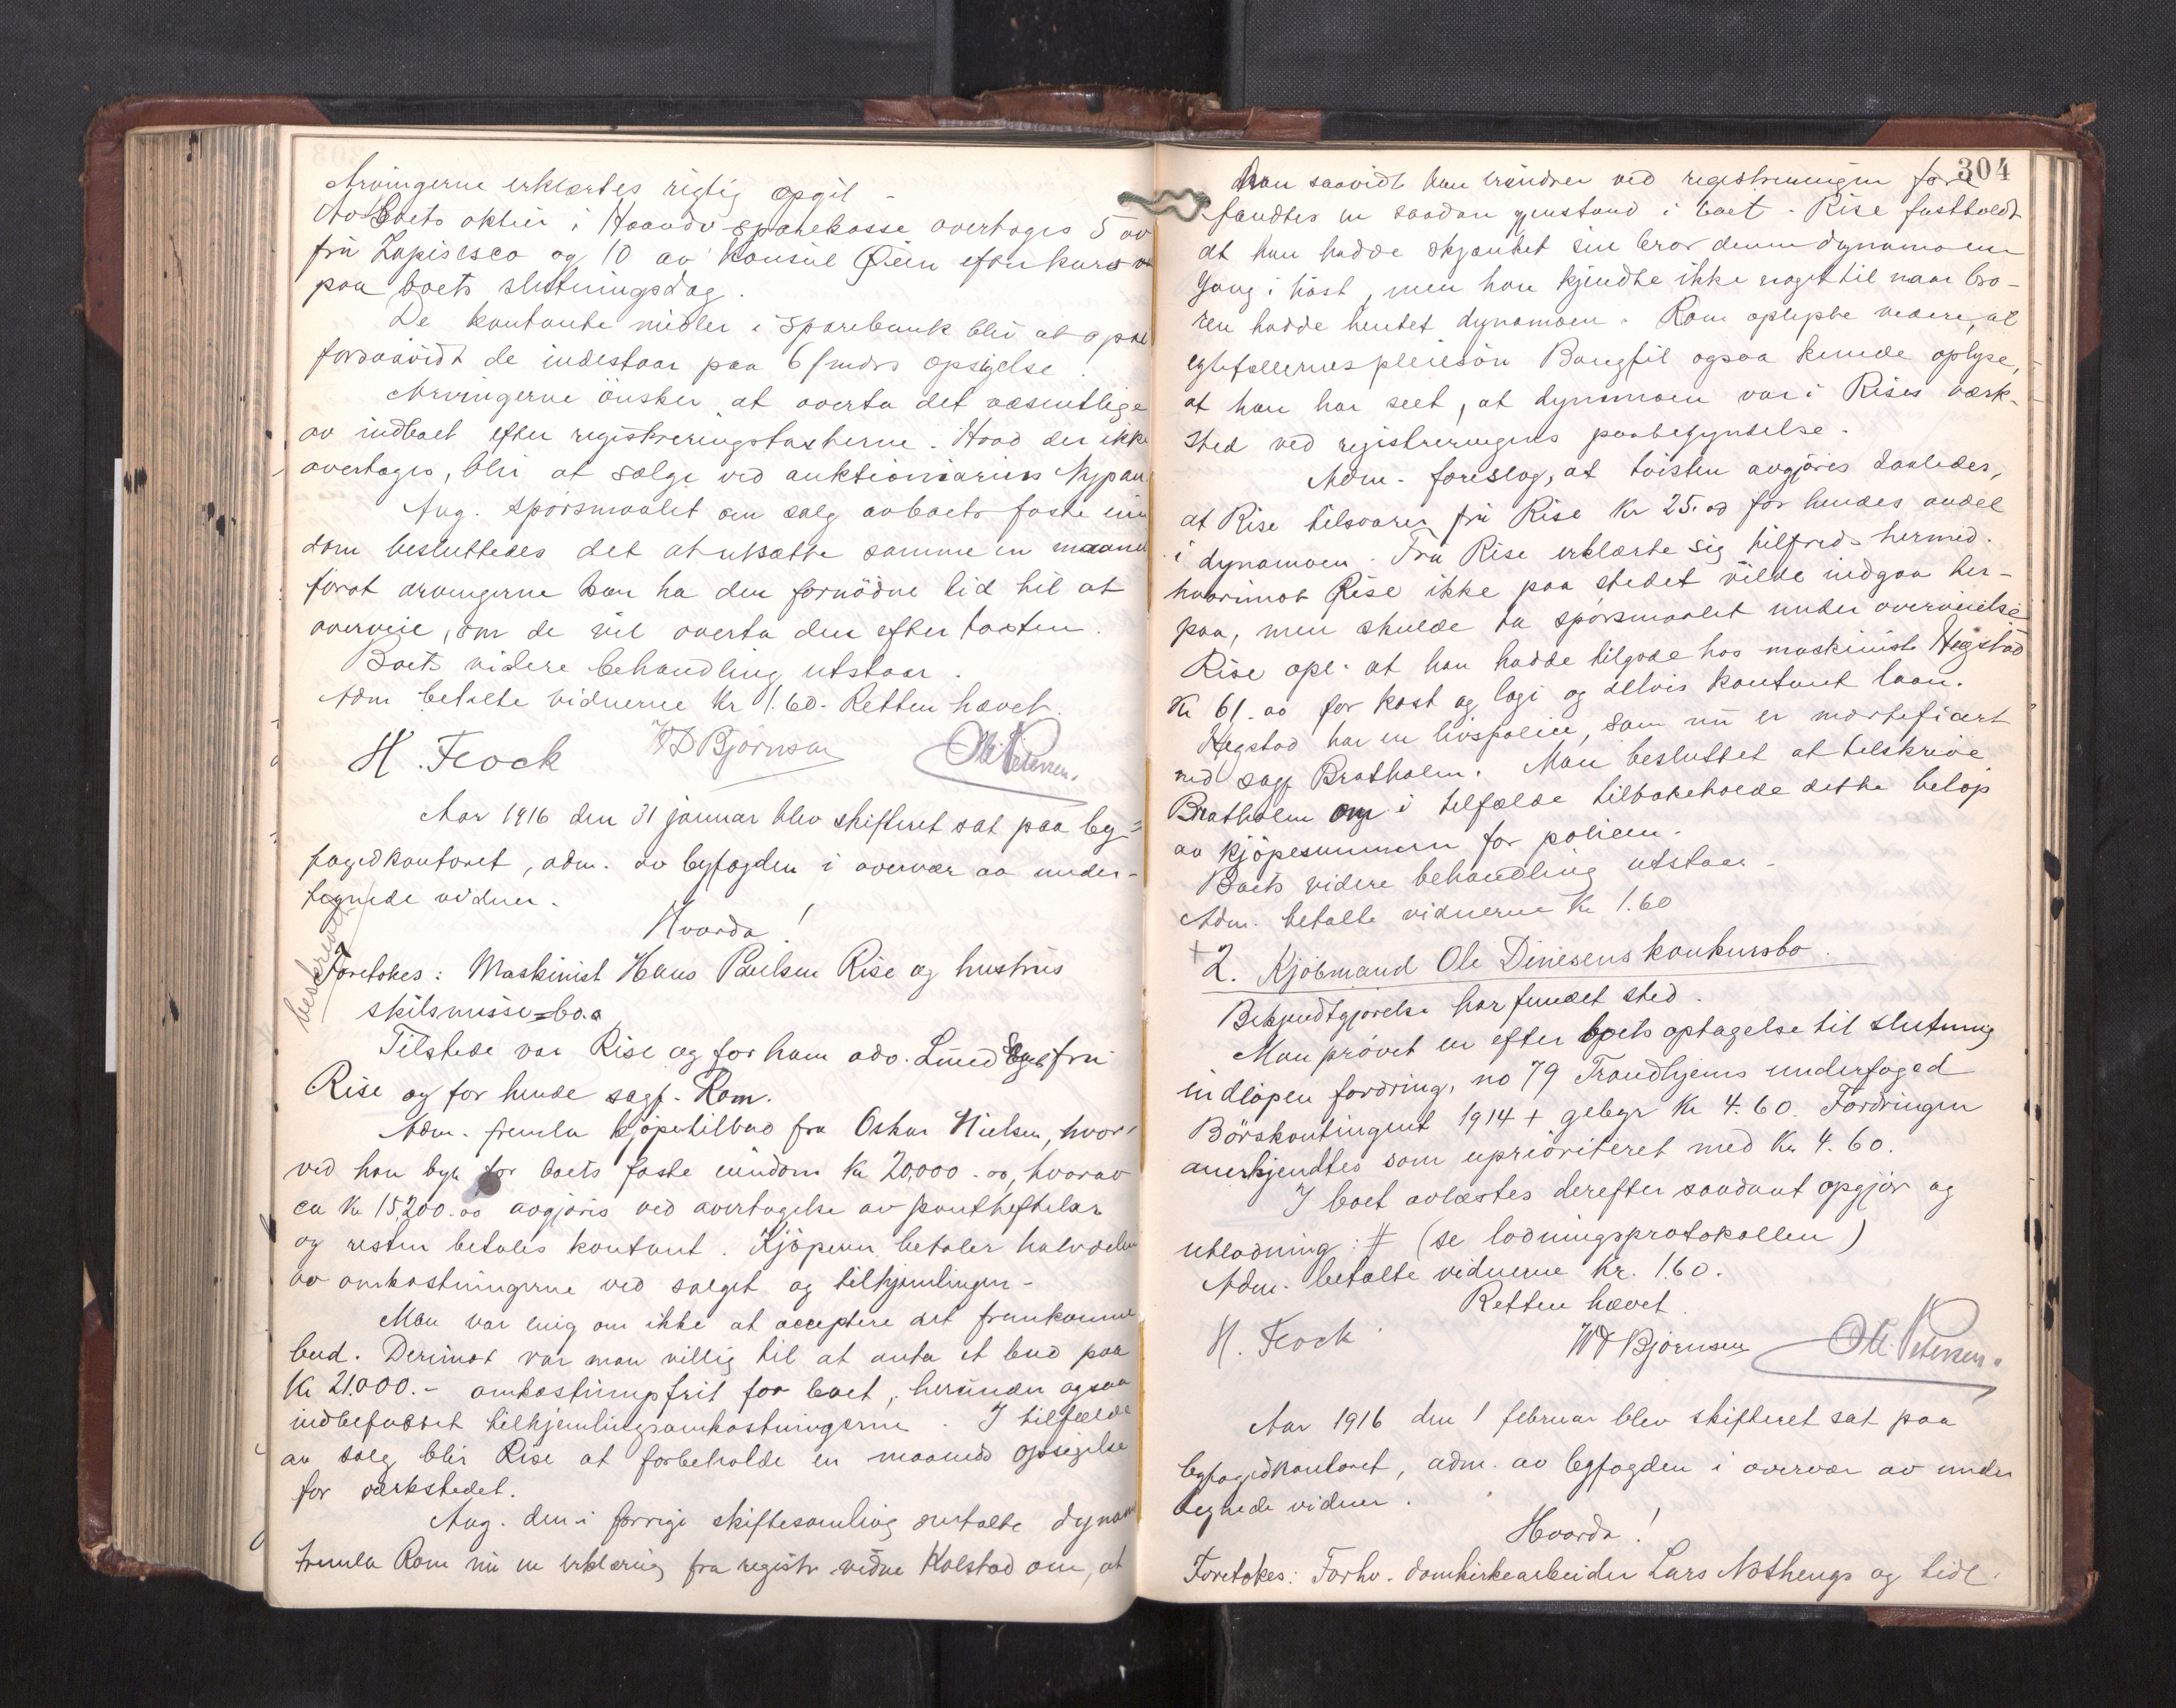 Arvingerne erklærtes rigtig opgit -
Av boets aktier i Haandv sparekasse overtages 5 av
fru Lapisesco og 10 av konsul Øien efter kurs
paa boets slutningsdag.
De kontante midler i Sparebank blir at opsi
forsaavidt de indestaar paa 6 mdrs opsigelse.
Arvingerne önsker at overta det væsentlige
av indboet efter registreringstaksterne. Hvad der ikke
overtages, blir at sælge ved auktionarius Nypan
Ang. spörsmaalet om salg av boets faste eien
dom besluttedes det at utsætte samme en maaned
forat arvingerne kan ha den fornödne tid til at
overveie, om de vil overta den efter taxten.
Boets videre behandling utstaar.
Adm betalte vidnerne Kr 1.60. Retten hævet.
H. Fcock W D Björnson Ole Petersen.
Aar 1916 den 31 januar blev skifteret sat paa by=
fogedkontoret, adm. av byfogden i overvær av under-
tegnede vidner.
Hvorda!
beskrevet
Foretokes: Maskinist Hans Paulsen Rise og hustrus
skilsmisse=bo.
Tilstede var Rise og for ham adv. Lund samt fru
Rise og for hende sagf. Rom.
Adm. fremla kjöpetilbud fra Oskar Nielsen, hvor-
ved han byr for boets faste eiendom Kr 20,000.00, hvorav
ca Kr 15,200.00 avgjöres ved overtagelse av pantheftelser
og resten betales kontant. Kjöperen betaler halvdelen
av omkostningerne ved salget og tilhjemlingen -
Man var enig om ikke at acceptere det fremkomne
bud. Derimot var man villig til at anta et bud paa
Kr 21.000.- omkostningsfrit for boet, herunder ogsaa
indbefattet tilhjemlingsomkostningerne. I tilfælde
av salg blir Rise at forbeholde en maaneds opsigelse
for verkstedet.
Ang. den i forrige skiftesamling omtalte dynamo
fremla Rom nu en erklæring fra registr. vidne Kolstad om, at
304
han saavidt han erindrer ved registreringen fore
fandtes en saadan gjenstand i boet. Rise fastholdt
at han hadde skjænket sin bror denne dynamo en
gang i höst, men han kjendte ikke noget til naar bro-
ren hadde hentet dynamoen. Rom oplyste videre, at
egtefællernes pleiesön Bangfil ogsaa kunde oplyse,
at han har seet, at dynamoen var i Rises værk-
sted ved registreringens paabegyndelse.
Adm. foreslog, at tvisten avgjöres saaledes,
at Rise tilsvarer fru Rise Kr 25.00 for hendes andel
i dynamoen. Fru Rise erklærte sig tilfreds hermed.
hvorimot Rise ikke paa stedet vilde indgaa her-
paa, men skulde ta spörsmaalet under overveielse
Rise opl. at han hadde tilgode hos maskinist Hegstad
Kr 61.00 for kost og logi og delvis kontant laan.
Hegstad har en livspolice, som nu er mortefisert
ved sagf Bratholm. Man besluttet at tilskrive
Bratholm om i tilfælde tilbakeholde dette belöp
av kjöpesummen for policen.
Boets videre behandling utstaar -
Adm. betalte vidnerne Kr 1.60
+ 2. Kjöbmand Ole Dinesens konkursbo.
Bekjendtgjörelse har fundet sted.
Man prövet en efter boets optagelse til slutning
indlöpen fordring, no 79 Trondhjems underfoged
Börskontingent 1914 + gebyr Kr 4.60. Fordringen
anerkjendtes som uprioriteret med Kr 4.60.
I boet avlæstes derefter saadant opgjör og
utlodning: # (se lodningsprotokollen)
Adm. betalte vidnerne Kr. 1.60.
Retten hævet.
H. Fcock. W D Björnson Ole Petersen.
Aar 1916 den 1 februar blev skifteret sat paa
byfogedkontoret, adm. av byfogden i overvær av under
tegnede vidner.
Hvorda!
Foretokes: Forhv. domkirkearbeider Lars Nothengs og tidl.